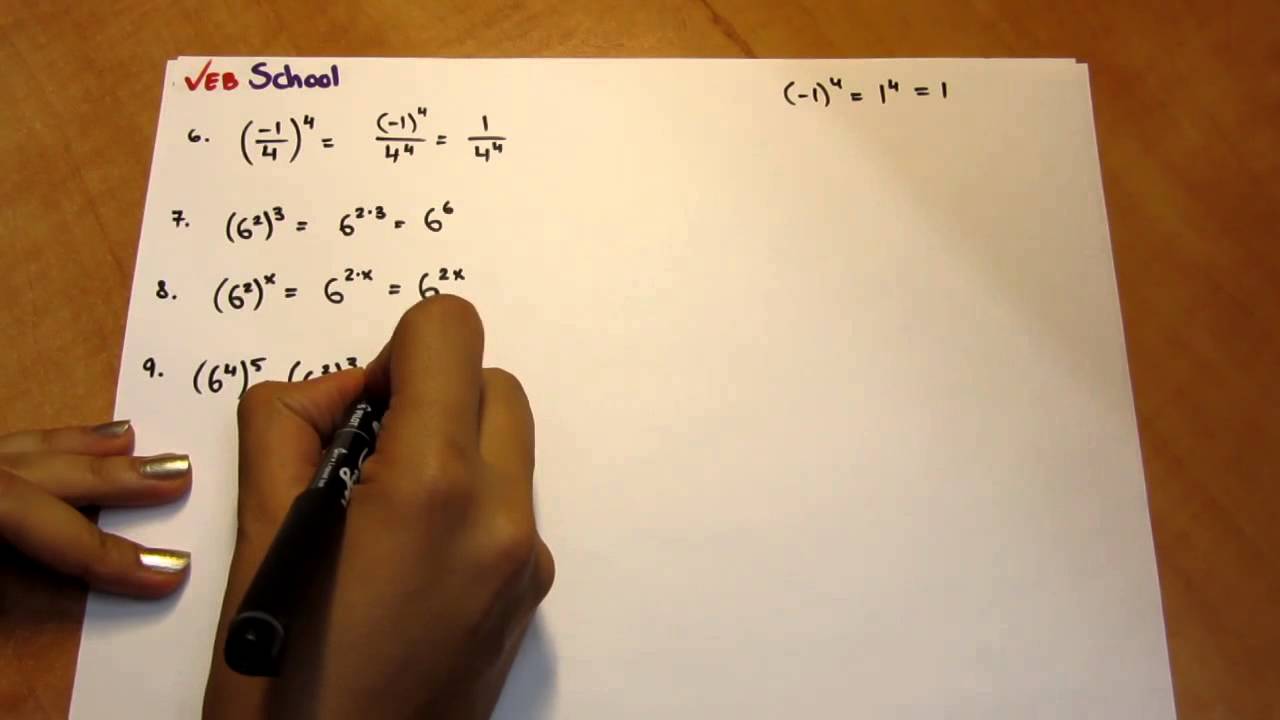 VEB School
(-1)⁴ = 1⁴ = 1
6. (-1/4)⁴ = (-1)⁴/4⁴ = 1/4⁴
7. (6²)³ = 6²·³ = 6⁶
8. (6²)ˣ = 6²·ˣ = 6²ˣ
9. (6⁴)⁵ (6²)³
PILOT